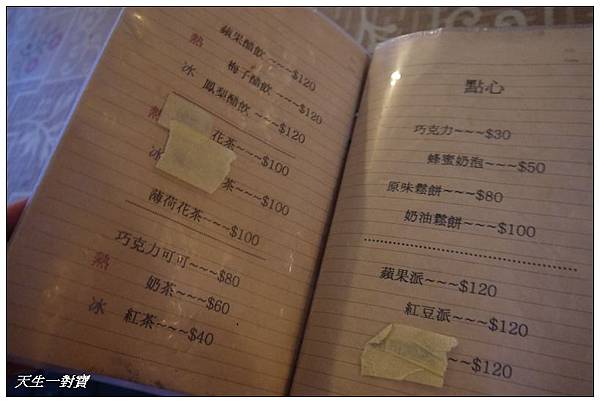 蘋果醋飲~~~$120
熱 梅子醋飲~~~$120
冰 鳳梨醋飲~~~$120
熱 花茶~~~$100
冰 茶~~~$100
薄荷花茶~~~$100
巧克力可可~~~$80
熱 奶茶~~~$60
冰 紅茶~~~$40
點心
巧克力~~~$30
蜂蜜奶泡~~~$50
原味鬆餅~~~$80
奶油鬆餅~~~$100
蘋果派~~~$120
紅豆派~~~$120
~~$120
天生一對寶